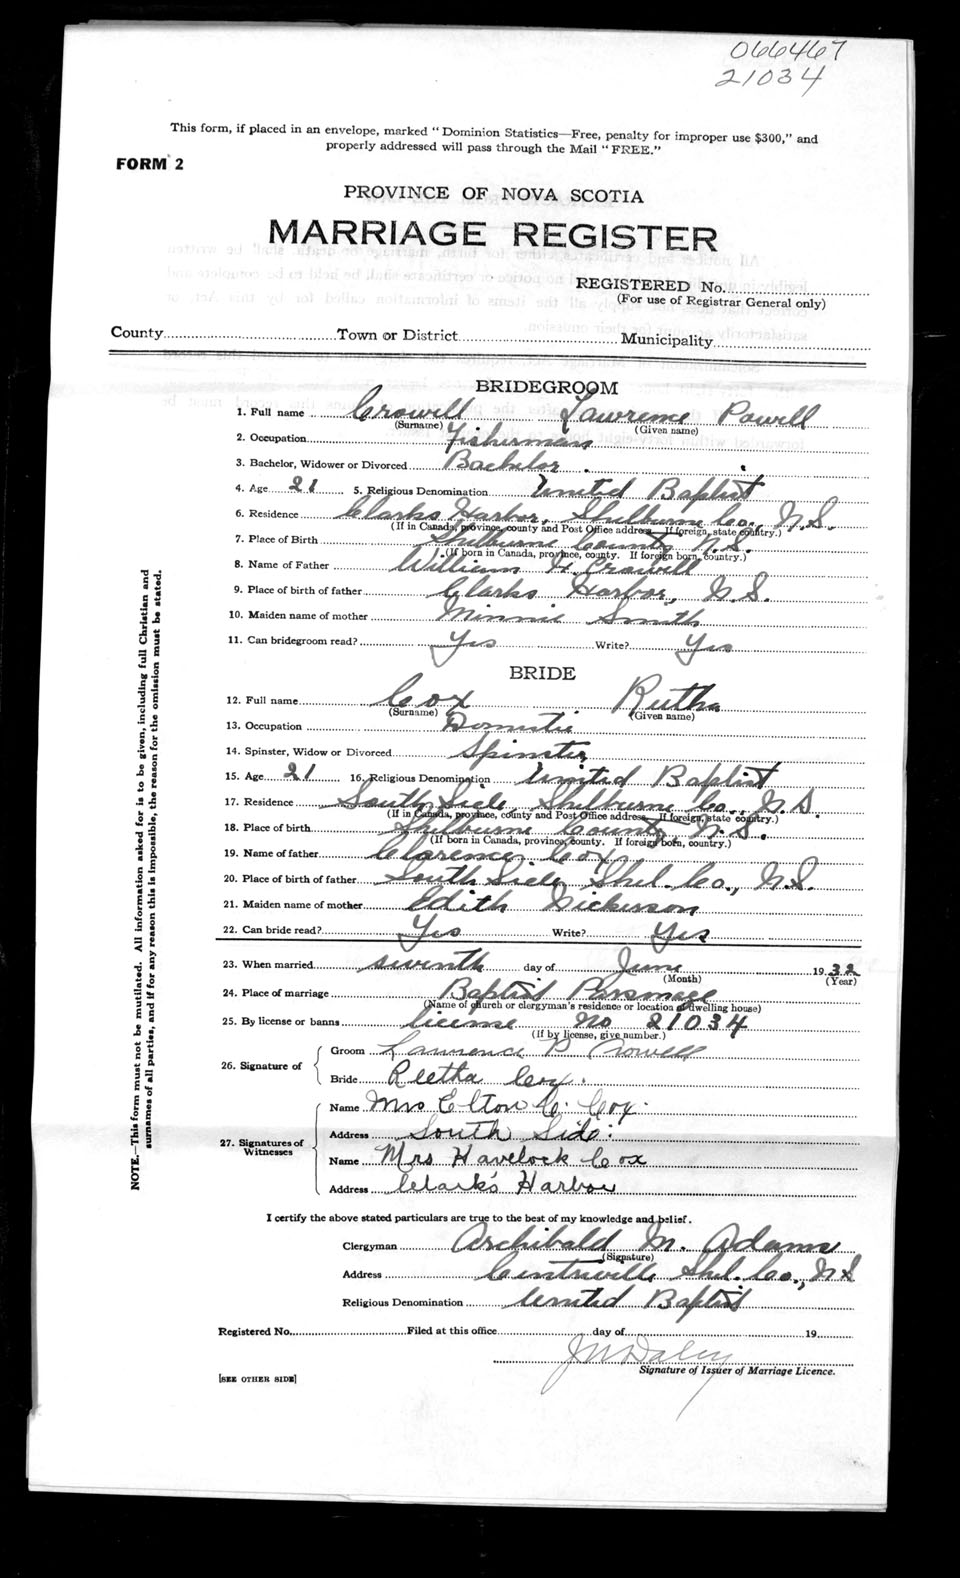 066467
21034
This form, if placed in an envelope, marked "Dominion Statistics—Free, penalty for improper use $300," and
properly addressed will pass through the Mail "FREE."
FORM 2
PROVINCE OF NOVA SCOTIA
MARRIAGE REGISTER
REGISTERED No.
(For use of Registrar General only)
County Town or District Municipality
BRIDEGROOM
1. Full name Crowell Lawrence Powell
(Surname) (Given name)
2. Occupation Fisherman
3. Bachelor, Widower or Divorced Bachelor
4. Age 21 5. Religious Denomination United Baptist
6. Residence Clarks Harbor, Shelburne Co., N.S.
(If in Canada, province, county and Post Office address. If foreign, state country.)
7. Place of Birth Shelburne County N.S.
(If born in Canada, province, county. If foreign born, country.)
8. Name of Father William H. Crowell
9. Place of birth of father Clarks Harbor, N.S.
10. Maiden name of mother Minnie Smith
11. Can bridegroom read? Yes Write? Yes
BRIDE
12. Full name Cox Retha
(Surname) (Given name)
13. Occupation Domestic
14. Spinster, Widow or Divorced Spinster
15. Age 21 16. Religious Denomination United Baptist
17. Residence South Side, Shelburne Co., N.S.
(If in Canada, province, county and Post Office address. If foreign, state country.)
18. Place of birth Shelburne County, N.S.
(If born in Canada, province, county. If foreign born, country.)
19. Name of father Clarence Cox
20. Place of birth of father South Side, Shel. Co., N.S.
21. Maiden name of mother Edith Nickerson
22. Can bride read? Yes Write? Yes
23. When married seventh day of June 1932
(Month) (Year)
24. Place of marriage Baptist Parsonage
(Name of church or clergyman's residence or location of dwelling house)
25. By license or banns license No 21034
(If by license, give number.)
26. Signature of
Groom Lawrence P Crowell
Bride Reetha Cox.
27. Signatures of
Witnesses
Name Mrs Elton C. Cox.
Address South Side.
Name Mrs Havelock Cox
Address Clark's Harbor
I certify the above stated particulars are true to the best of my knowledge and belief.
Clergyman Archibald M. Adams
(Signature)
Address Centreville Shel. Co., N S
Religious Denomination United Baptist
Registered No. Filed at this office day of 19
Signature of Issuer of Marriage Licence.
[SEE OTHER SIDE]
NOTE.—This form must not be mutilated. All information asked for is to be given, including full Christian and
surnames of all parties, and if for any reason this is impossible, the reason for the omission must be stated.